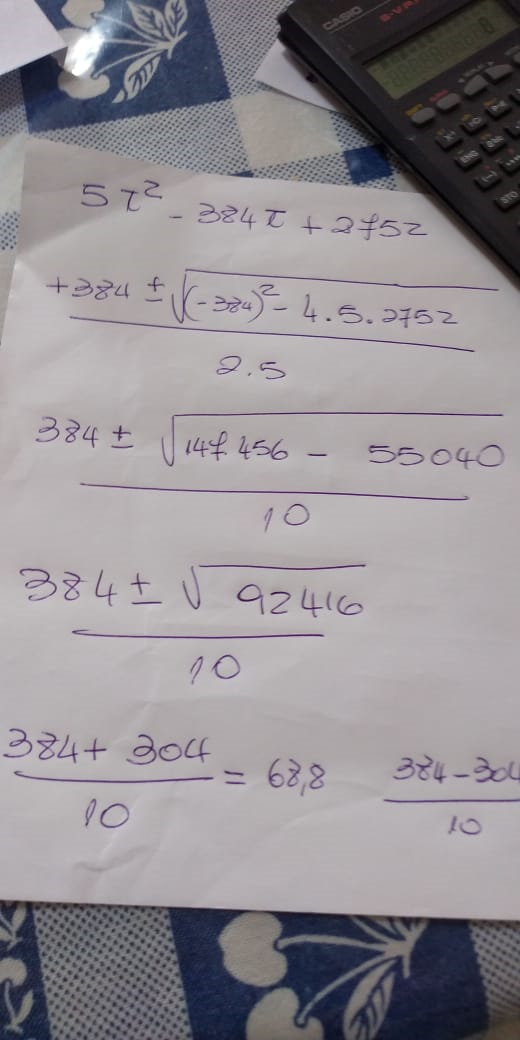 CASIO
5τ² - 384τ + 2752
+384 ± √(-384)² - 4.5.2752
2.5
384 ± √147.456 - 55040
10
384 ± √92416
10
384 + 304 = 68,8 384 - 304
10 10